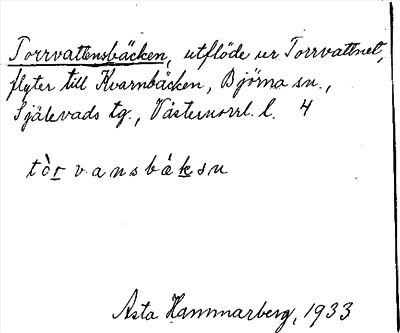 Torrvattensbäcken, utflöde ur Torrvattnet,
flyter till Kvarnbäcken, Björna sn.,
Själevads tg., Västernorrl. l. 4
tòr vansbàksn
Asta Hammarberg, 1933